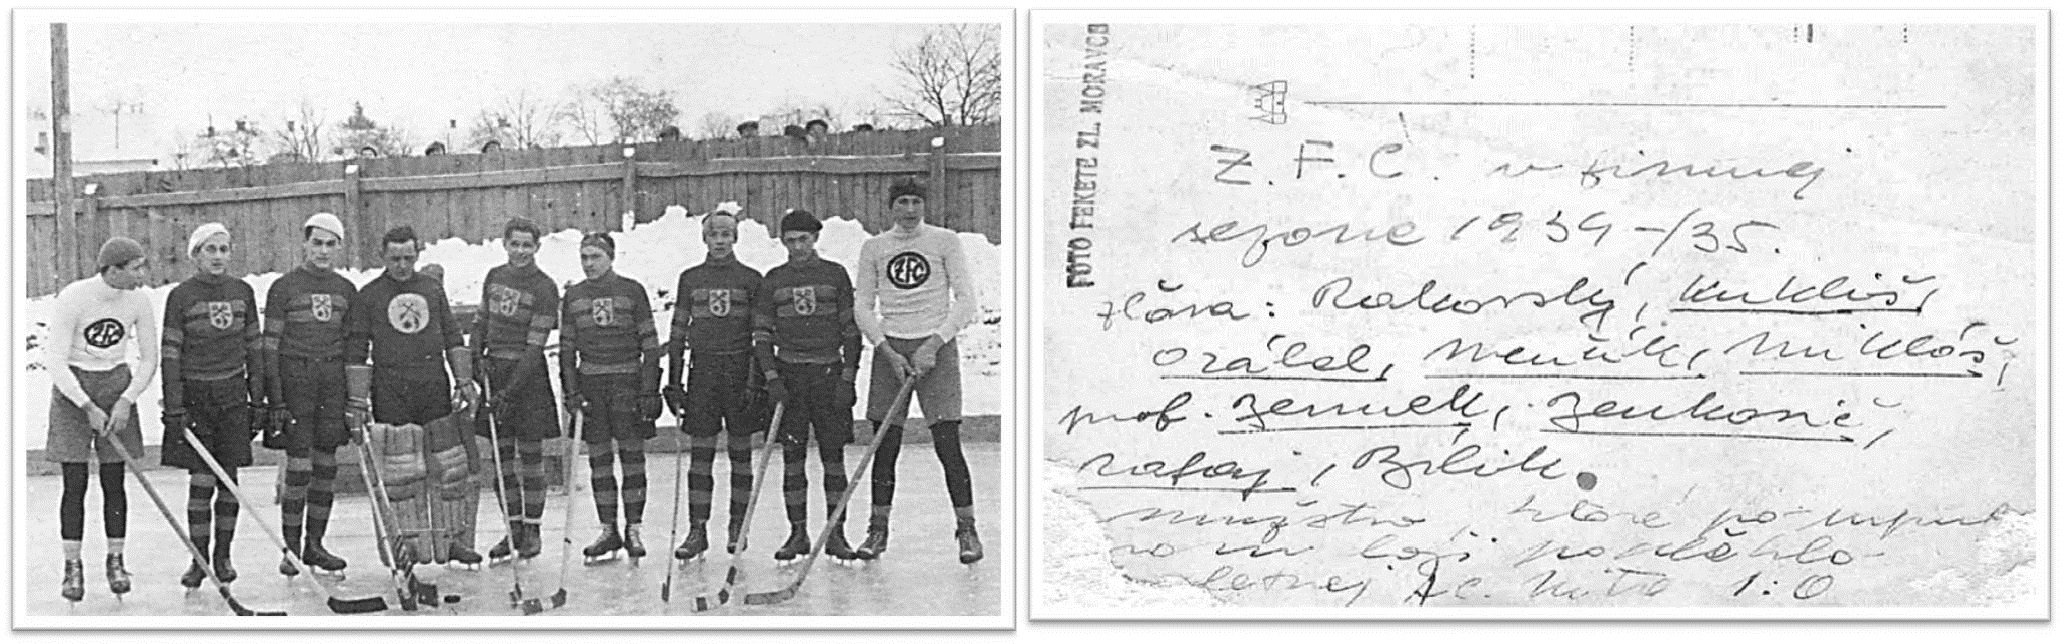 ZFC
ZFC
FOTO FEKETE ZL. MORAVCE
Z. F. C. v zimnej
sezone 1934-/35.
zľava: Rakovský, Kukliš,
Orálek, Menčík, Mikloš,
prof. Zemek, Zenkovič,
Rataj, Bílik.
mužstvo, ktoré po
boji podľahlo
letnej AC. Nitra 1:0